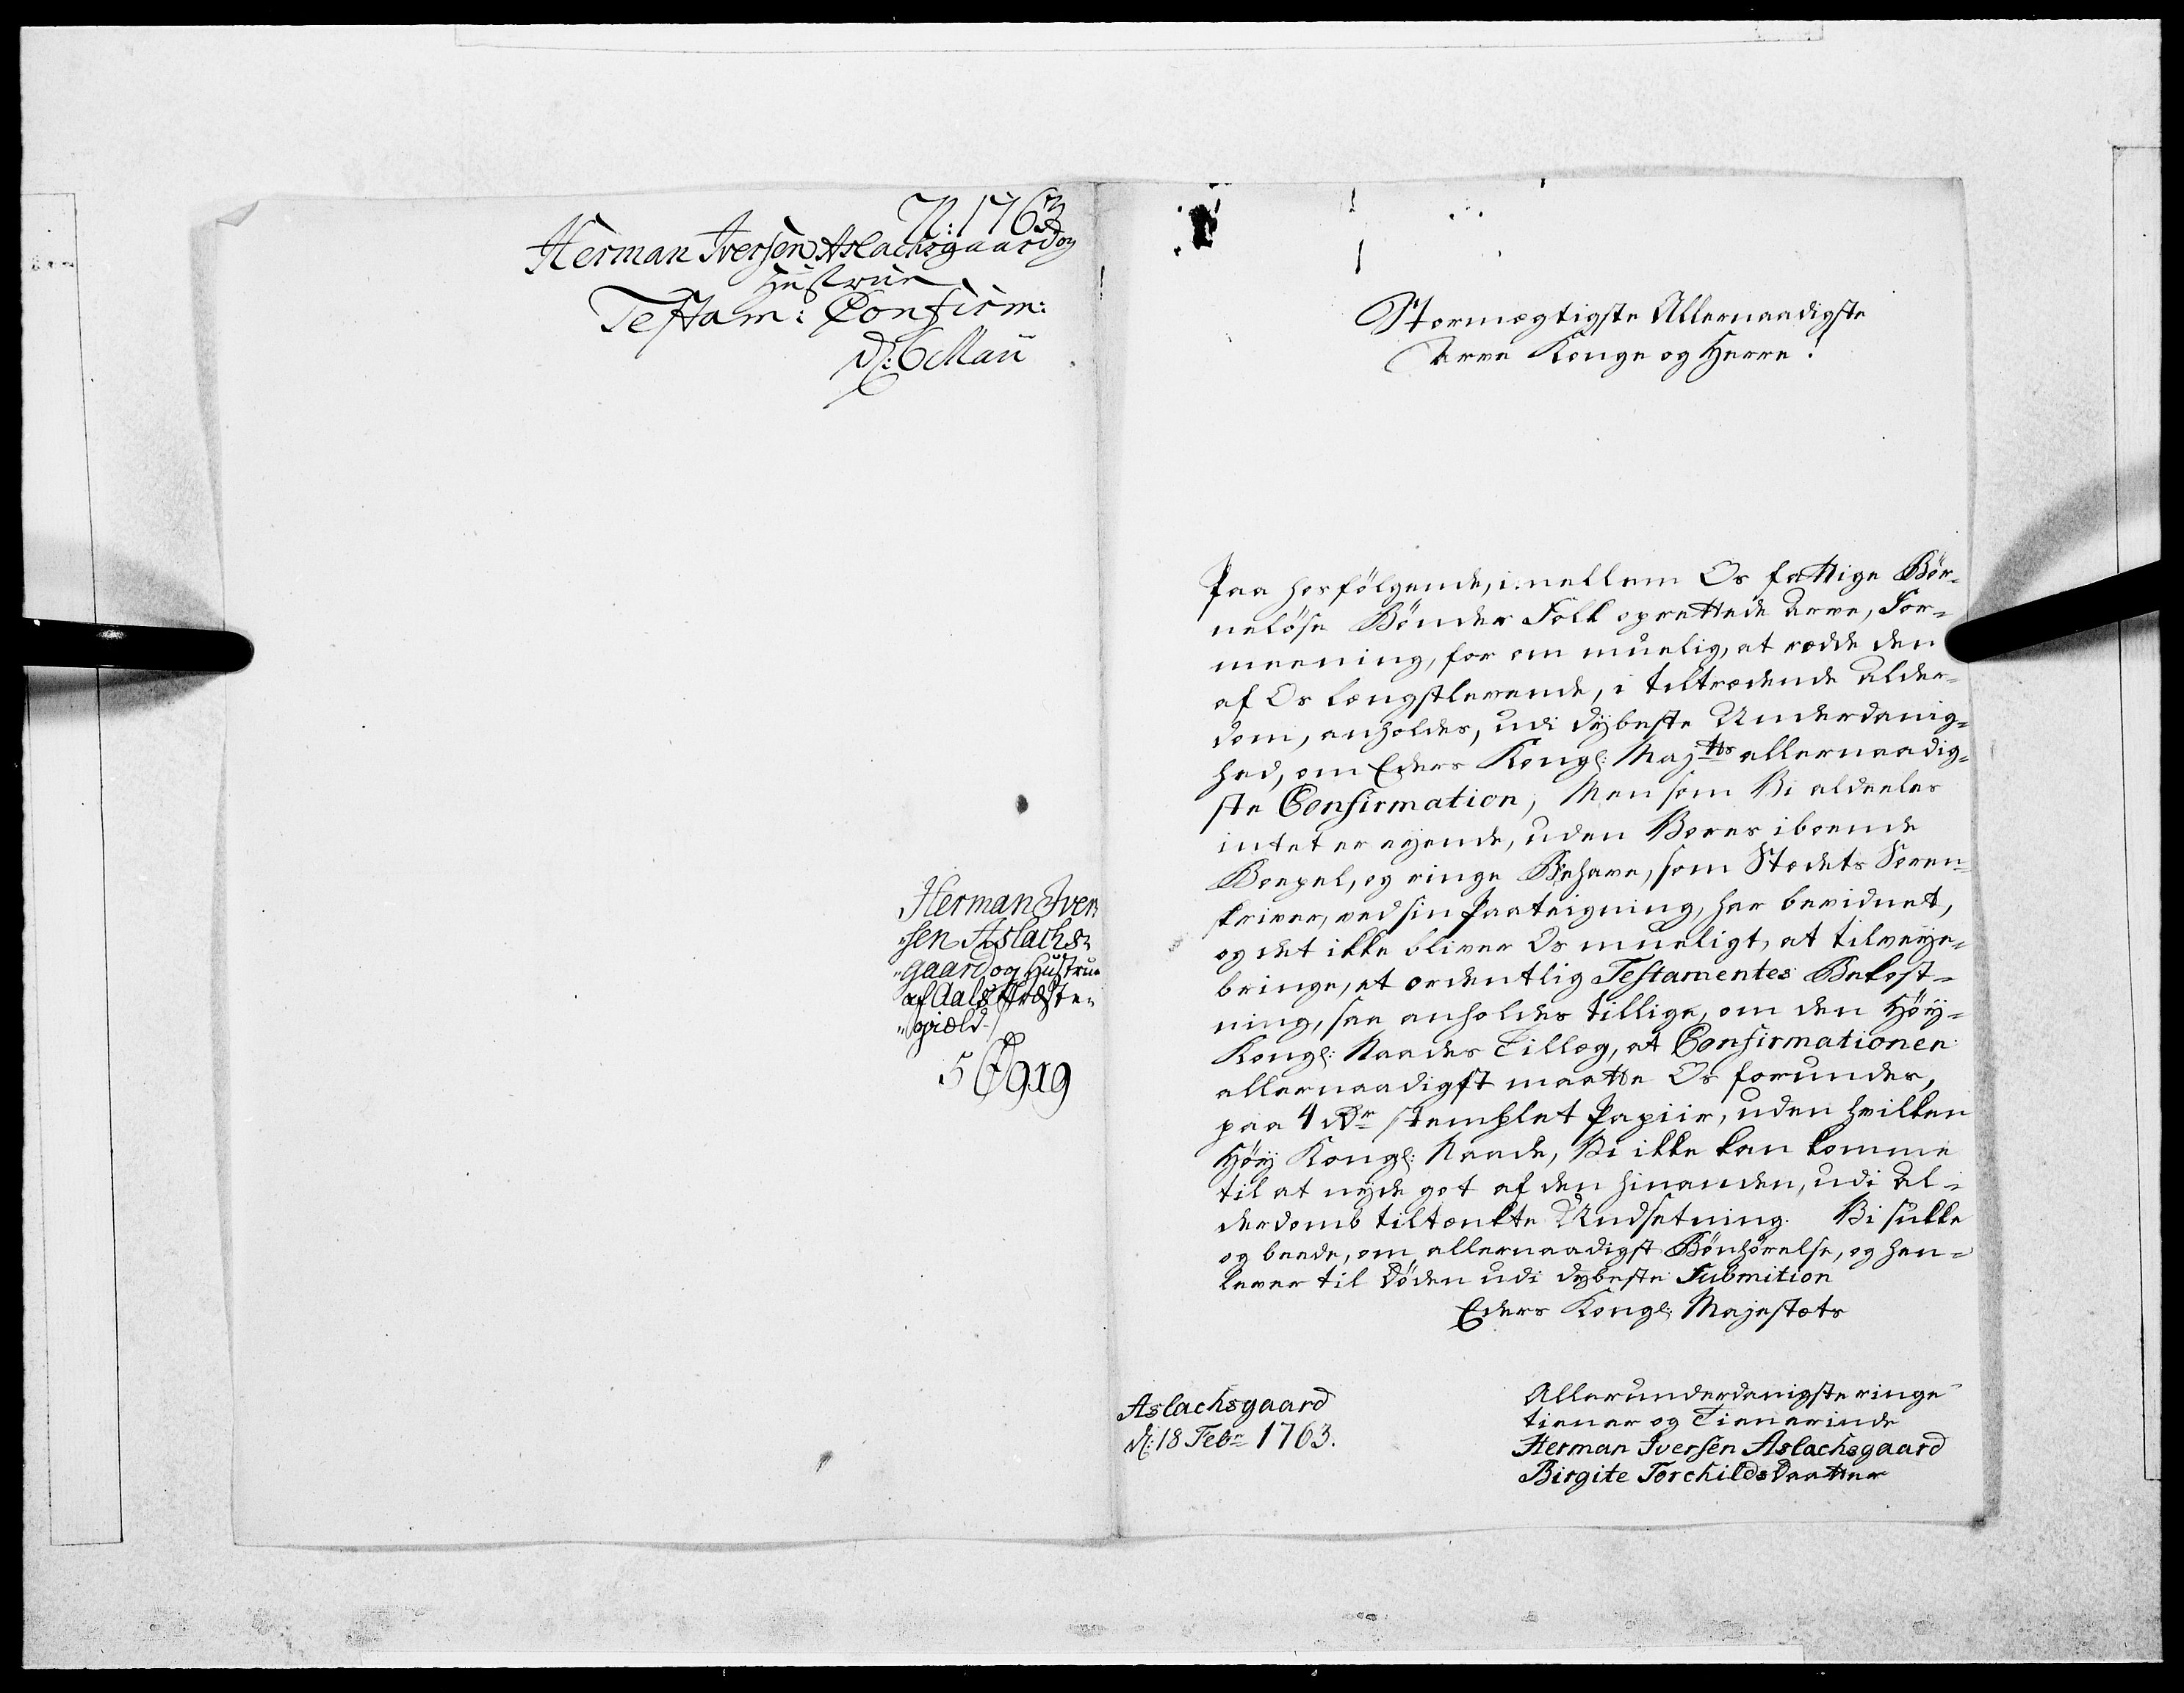 N: 1763
Herman Iversen Aslachsgaard og
Hustrue
Testam: Confirm:
d: 6 Maii
Herman Iver
sen Aslachs-
gaard og Hustrue
af Aals Præste-
gield
919
Stormægtigste Allernaadigste
Arve Konge og Herre!
Paa hosfölgende, imellem Os fattige Bör-
nelöse Bönder Folk oprettede Arve, For-
meening, for om muelig, at rædde den
af Os længstlevende, i tiltrædende Alder-
dom, anholdes, udi dÿbeste Underdanig-
hed, om Eders Kongl: Majtts allernaadig-
ste Confirmation, Men som Vi aldeeles
intet er eyende, uden Vores iboende
Boepæl, og ringe Behave, som Stædets Soren-
skriver, ved sin Paateigning, har bevidnet,
og det ikke bliver Os mueligt, at tilveye-
bringe, et ordentlig Testamentes Bekost-
ning, saa anholdes tillige, om den Höÿ-
Kongl: Naades Tillæg, at Confirmationen
allernaadigst maatte Os forundes,
paa 4 Rdr stemplet Papiir, uden hvilken
Höÿ Kongl: Naade, Vi ikke kan komme
til at nÿde got af den hinanden, udi Al-
derdomb tiltænkte Undsetning. Vi sukke
og beede, om allernaadigst Bönhörelse, og hen-
lever til Döden udi dybeste Submition
Eders Kongl: Majestæts
Allerunderdanigste ringe
tiener og Tienerinde
Aslachsgaard
d: 18 Febr 1763.
Herman Iversen Aslachsgaard
Birgite Torchilds Daatter